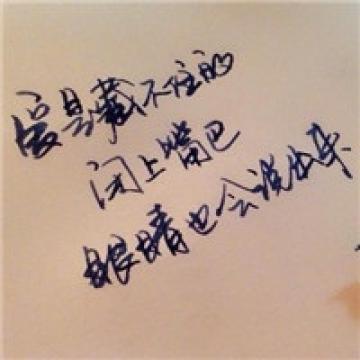 爱是藏不住的
闭上嘴巴
眼睛也会说出来